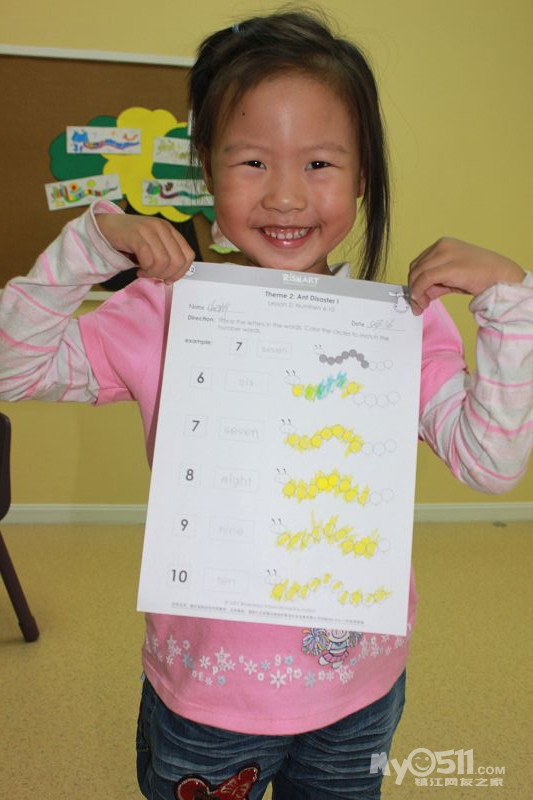 RISMART
Theme 2: Ant Disaster I
Lesson 2, Numbers 6-10
Name
Date
Direction: Trace the letters in the words. Color the circles to match the
number words.
example: 7 seven
6 six
7 seven
8 eight
9 nine
10 ten
My0511.com
镇江网友之家